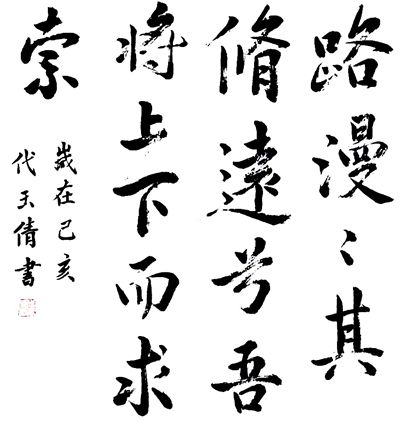 路漫〻其
脩遠兮吾
將上下而求
索
歲在己亥
代玉倩書